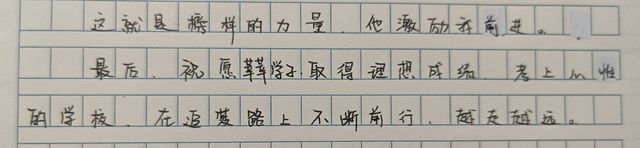 这就是榜样的力量，他激励我前进。
最后，祝愿莘莘学子取得理想成绩，考上心怡
的学校，在追梦路上不断前行，越走越远。